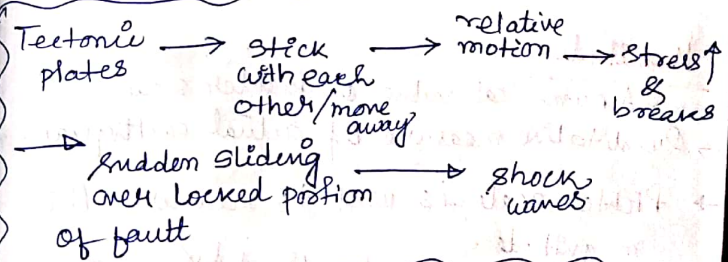 Tectonic plates → stick with each other/move away → relative motion → stress↑ & breaks
→ sudden sliding over locked portion of fault → shock waves